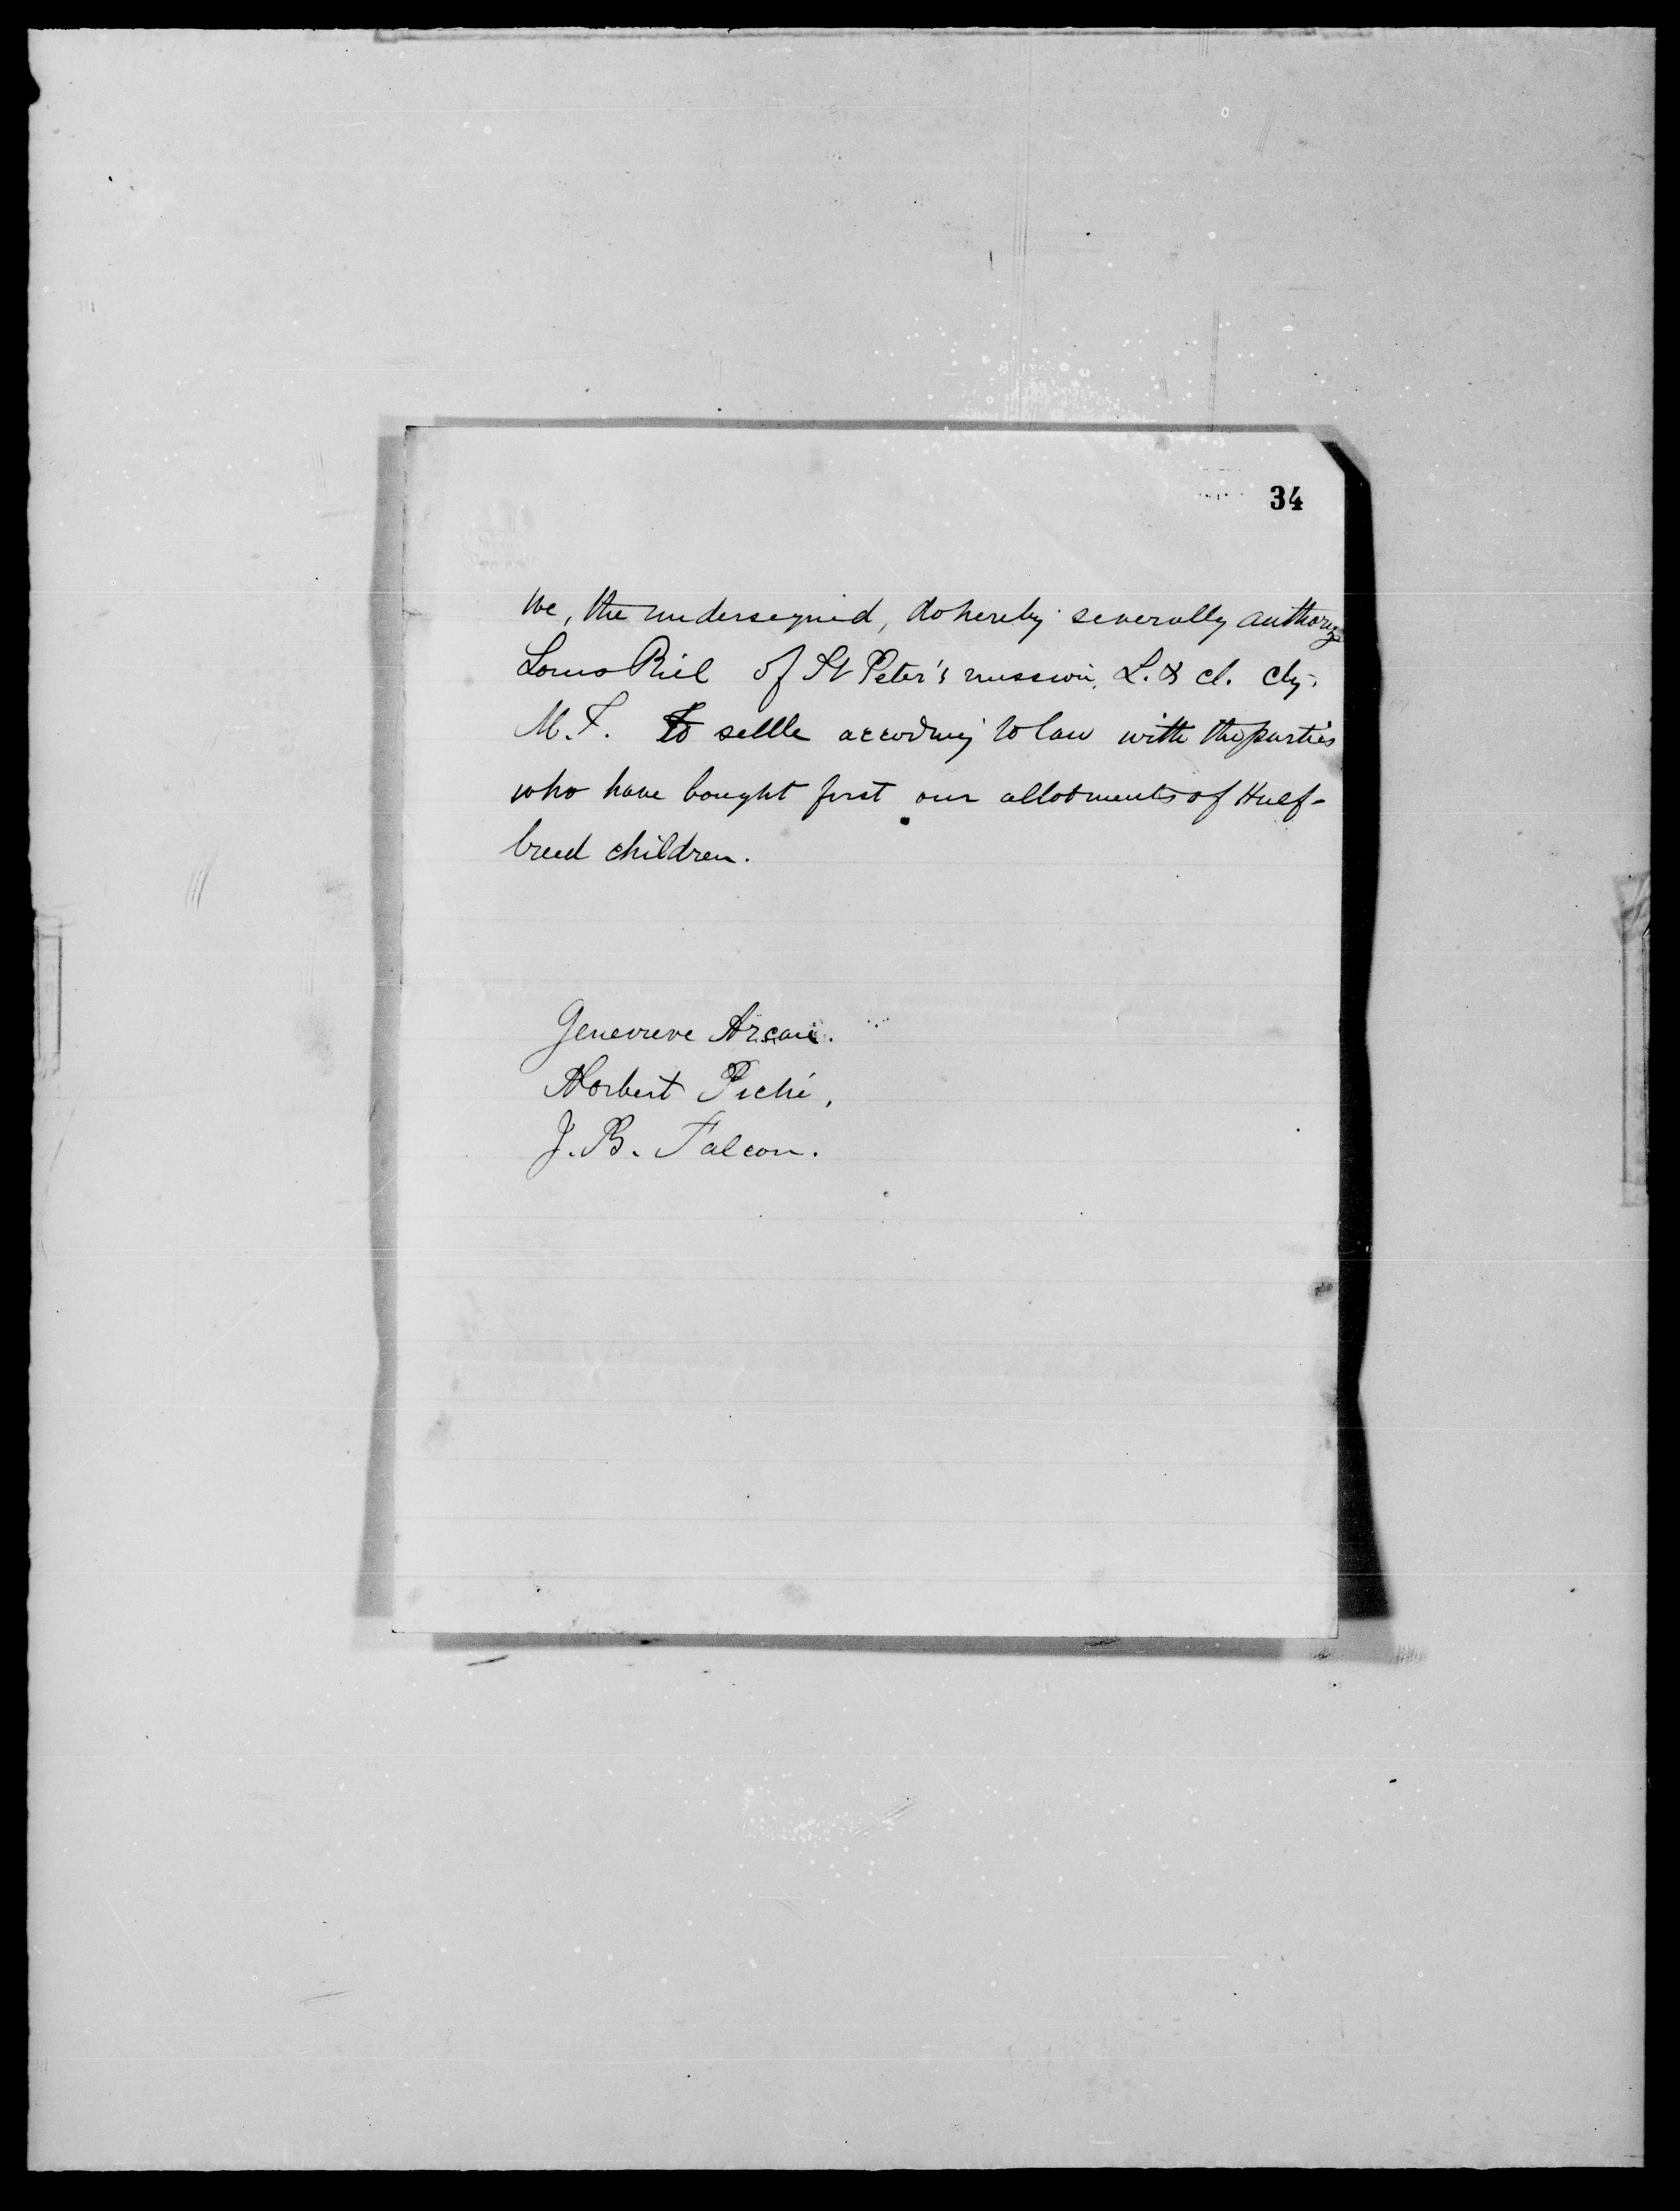 34
We, the undersigned, do hereby severally authorize
Louis Riel of St Peter's mission, L. & cl. cty,
M. T. to settle according to law with the parties
who have bought first our allotments of Half-
breed children.
Genevieve Arcan.
Norbert Piché,
J. B. Falcon.